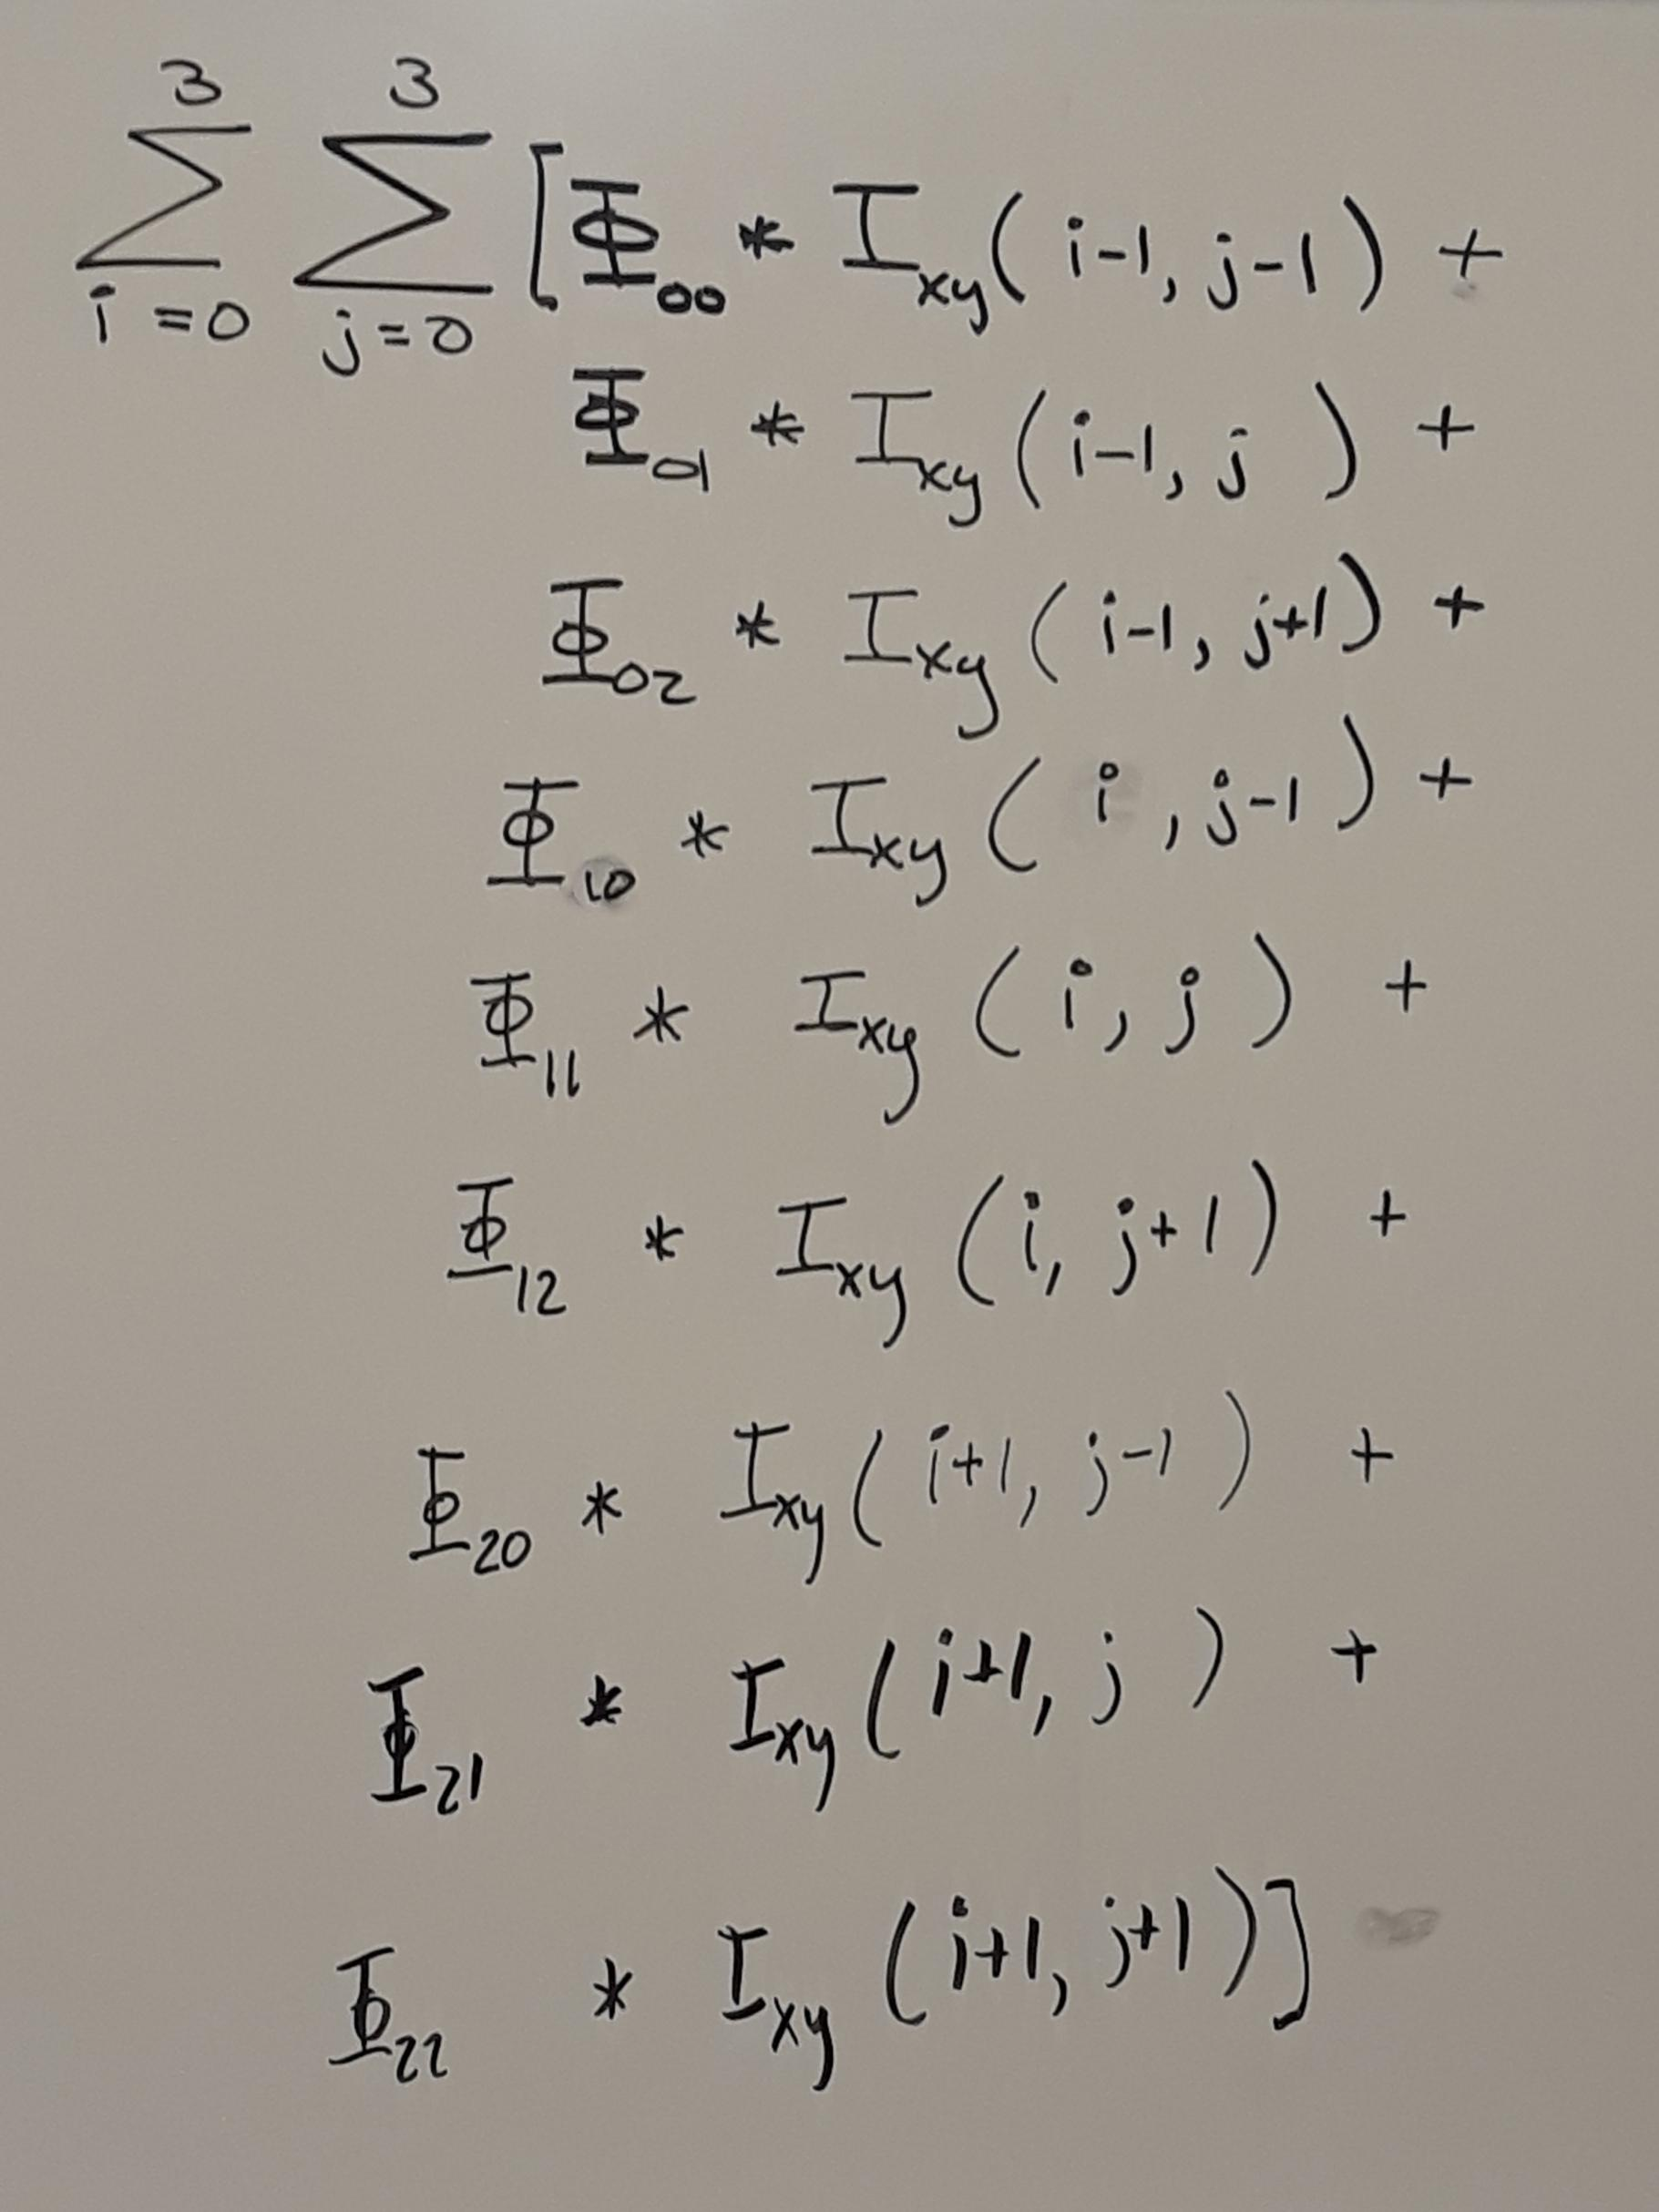 3 3
∑ ∑ [Φ₀₀ * I_xy(i-1, j-1) +
i=0 j=0
Φ₀₁ * I_xy(i-1, j) +
Φ₀₂ * I_xy(i-1, j+1) +
Φ₁₀ * I_xy(i, j-1) +
Φ₁₁ * I_xy(i, j) +
Φ₁₂ * I_xy(i, j+1) +
Φ₂₀ * I_xy(i+1, j-1) +
Φ₂₁ * I_xy(i+1, j) +
Φ₂₂ * I_xy(i+1, j+1)]